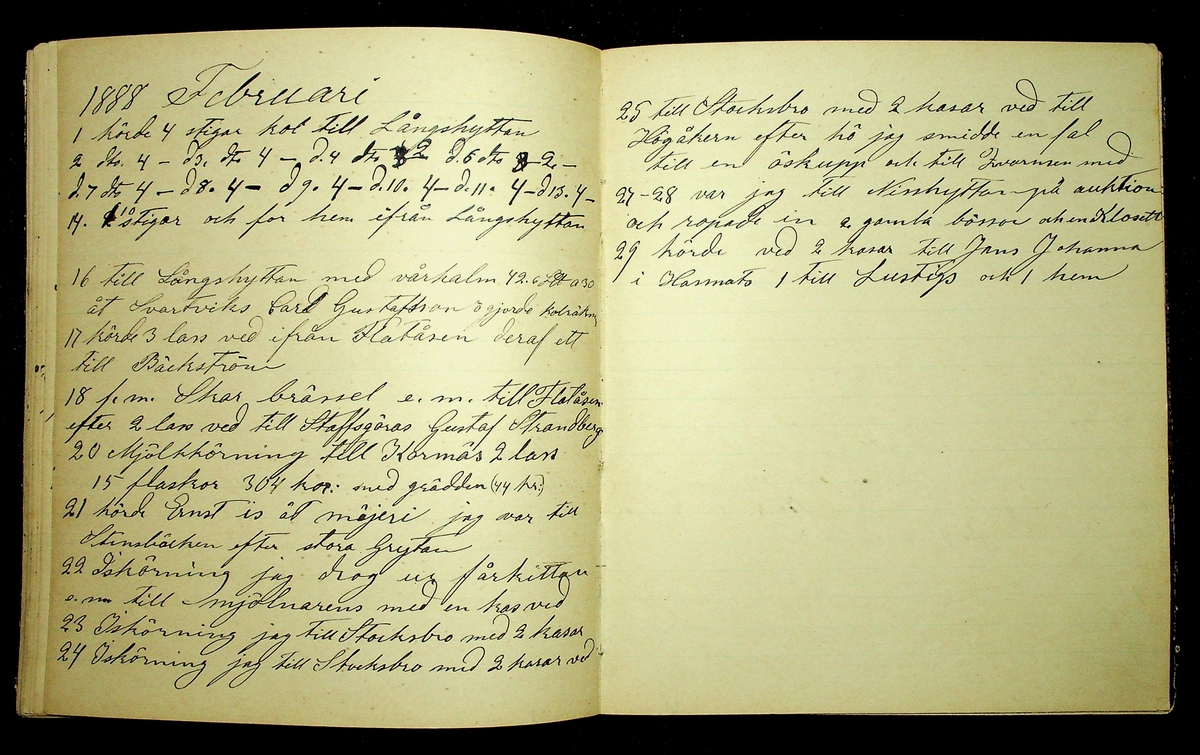 1888 Februari
1 körde 4 stigar kol till Långshyttan
2 dto 4 – d3. dto 4 – d.4 dto 2 d.6 dto 2 –
d.7 dto 4 – d8. 4 – d9. 4 – d.10. 4 – d.11. 4 – d13. 4 –
14. 10 stigar och for hem ifrån Långshyttan
16 till Långshyttan med vårhalm 42.6 a 30
åt Svartviks Carl Gustafsson gjorde kolräkn
17 körde 3 lass ved ifrån Flatåsen deraf ett
till Bäckström
18 f.m. Skar brässel e.m. till Flatåsen
efter 2 lass ved till Staffsgöras Gustaf Strandberg
20 Mjölkkörning till Kormäs 2 lass
15 flaskor 304 kor: med grädden (44 kr:)
21 körde Ernst is åt mejeri jag var till
Stensbäcken efter stora Grytan
22 Iskörning jag drog ur fårkittan
e.m till mjölnarens med en kas ved
23 Iskörning jag till Stocksbro med 2 kasar
24 Iskörning jag till Stocksbro med 2 kasar ved
25 till Stocksbro med 2 kasar ved till
Högåkern efter hö jag smidde en fal
till en öskupp och till Qvarnsen med
27–28 var jag till Nisshyttan på auktion
och ropade in 2 gamla bössor och en Klosett
29 körde ved 2 kasar till Jans Johanna
i Hasmats 1 till Lustigs och 1 hem